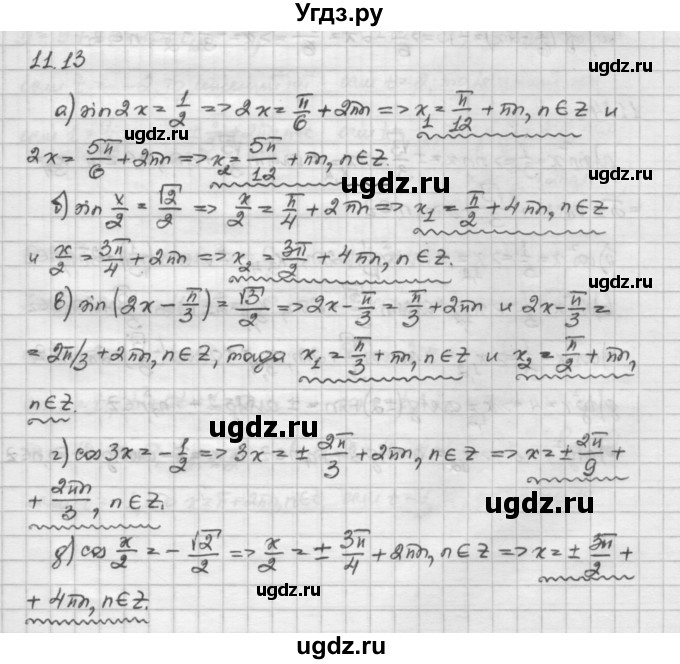 Угдз.ру
11.13
ugdz.ru ugdz.ru
а) sin 2x = 1/2 => 2x = π/6 + 2πn => x₁ = π/12 + πn, n∈Z и
ugdz.ru
2x = 5π/6 + 2πn => x₂ = 5π/12 + πn, n∈Z.
ugdz.ru
б) sin x/2 = √2/2 => x/2 = π/4 + 2πn => x₁ = π/2 + 4πn, n∈Z
ugdz.ru
и x/2 = 3π/4 + 2πn => x₂ = 3π/2 + 4πn, n∈Z.
ugdz.ru
в) sin(2x - π/3) = √3/2 => 2x - π/3 = π/3 + 2πn и 2x - π/3 =
= 2π/3 + 2πn, n∈Z, тогда x₁ = π/3 + πn, n∈Z и x₂ = π/2 + πn,
n∈Z.
ugdz.ru
ugdz.ru
г) cos 3x = -1/2 => 3x = ± 2π/3 + 2πn, n∈Z => x = ± 2π/9 +
+ 2πn/3, n∈Z.
ugdz.ru
ugdz.ru
д) cos x/2 = -√2/2 => x/2 = ± 3π/4 + 2πn, n∈Z => x = ± 3π/2 +
+ 4πn, n∈Z.
ugdz.ru ugdz.ru
ugdz.ru